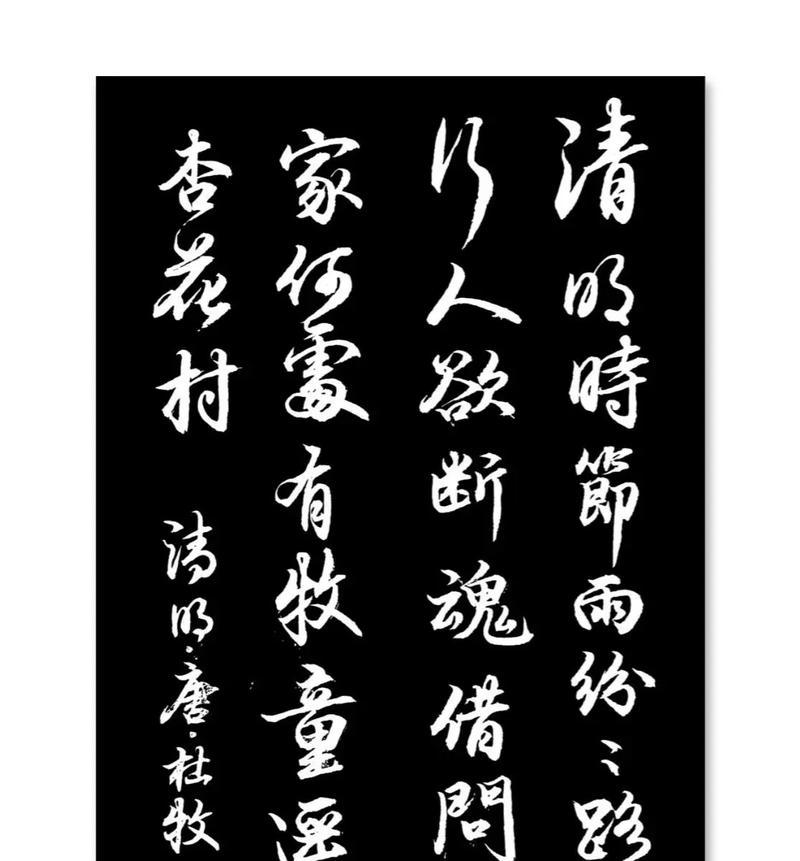 清明時節雨紛〻路
行人欲断魂借問
家何處有牧童遥
杏花村
清明·唐·杜牧